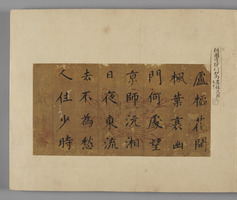 盧橘花開
楓葉衰出
門何處望
京師沅湘
日夜東流
去不為愁
人住少時